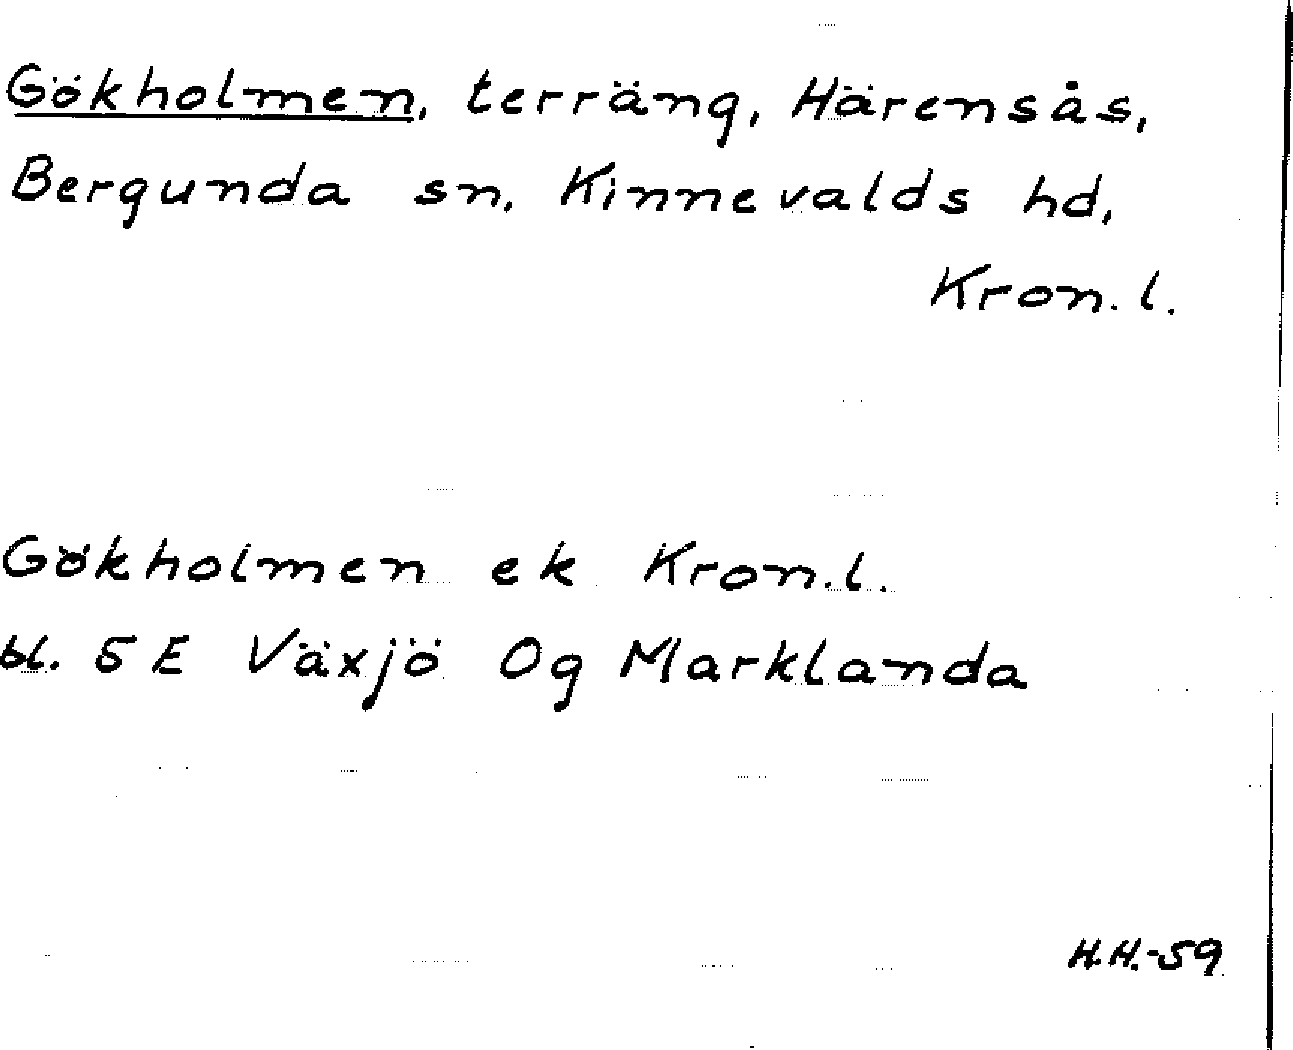 Gökholmen, terräng, Härensås,
Bergunda sn, Kinnevalds hd,
Kron. l.
Gökholmen ek Kron. l.
bl. 5 E Växjö Og Marklanda
H.H.-59